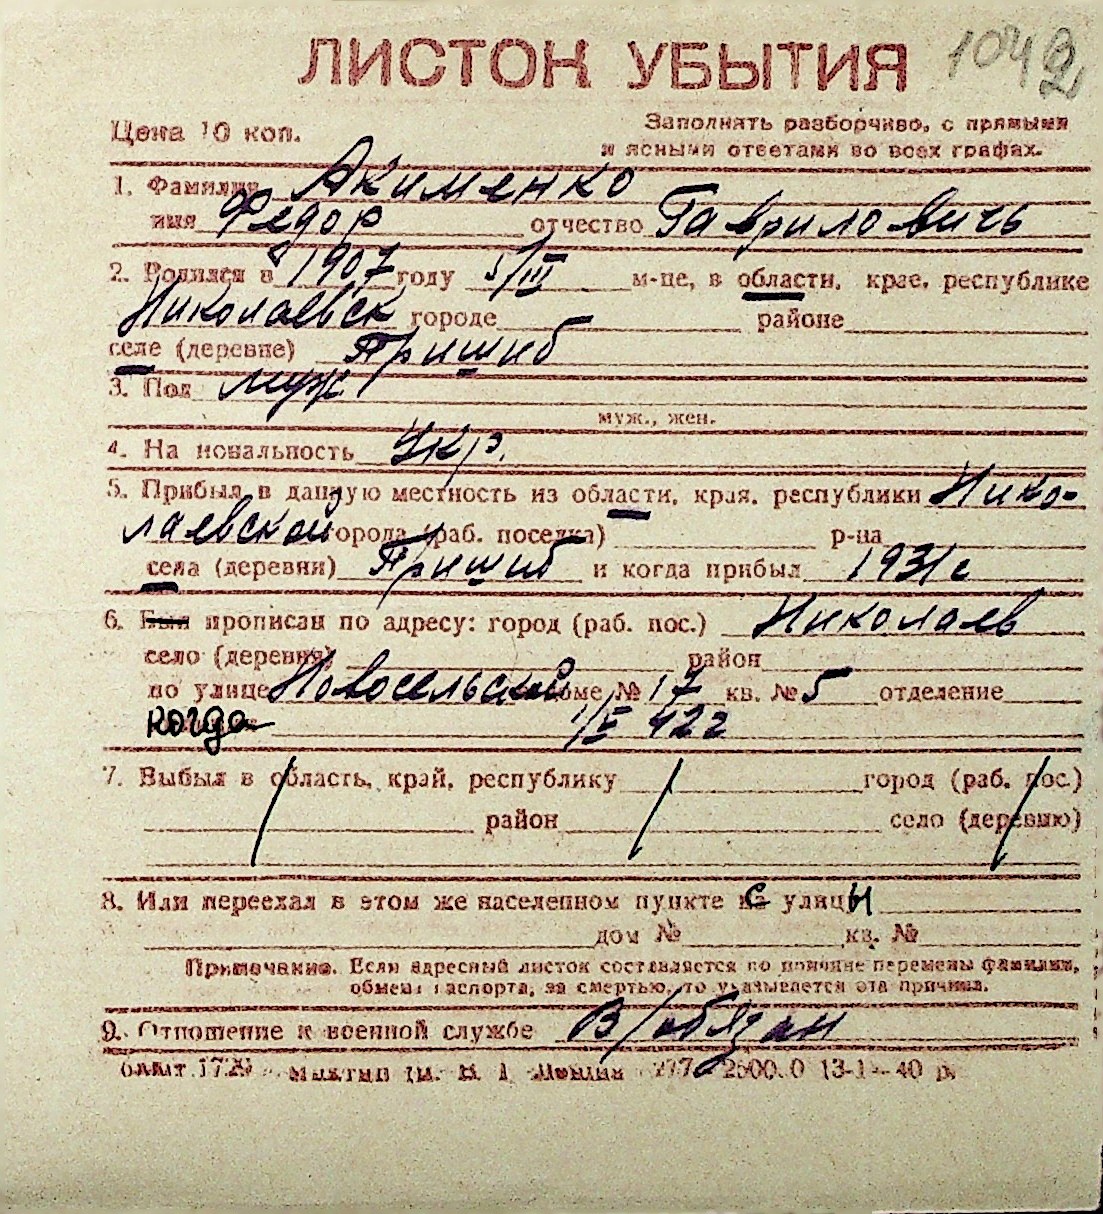 ЛИСТОК УБЫТИЯ 1042
Цена 10 коп. Заполнять разборчиво, с прямыми
и ясными ответами во всех графах.
1. Фамилия Акименко
имя Федор отчество Гавриловичь
2. Родился в 1907 году 5/III м-це, в области, крае, республике
Николаевск городе районе
селе (деревне) Пришиб
3. Пол муж
муж., жен.
4. На нональность Укр.
5. Прибыл в данную местность из области, края, республики Нико-
лаевской города (раб. поселка) р-на
села (деревни) Пришиб и когда прибыл 1931 г
6. Был прописан по адресу: город (раб. пос.) Николаев
село (деревня) район
по улице Новосельская доме № 17 кв. № 5 отделение
когда 1/V 42 г
7. Выбыл в область, край, республику город (раб. пос.)
район село (деревню)
8. Или переехал в этом же населенном пункте с улицы
дом № кв. №
Примечание. Если адресный листок составляется по причине перемены фамилии,
обмена паспорта, за смертью, то указывается эта причина.
9. Отношение к военной службе В/обязан
13-1—40 р.